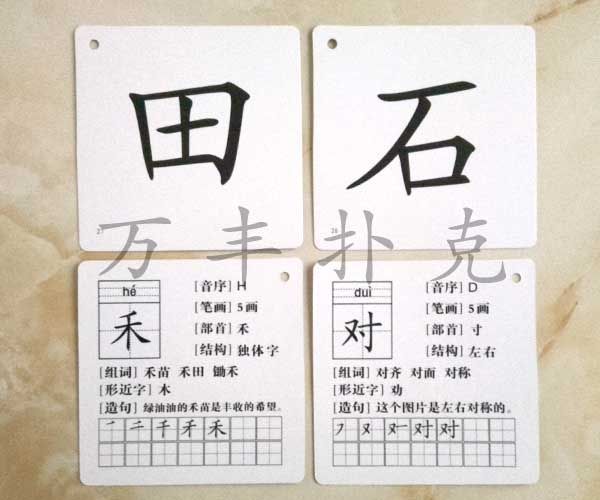 田
27
石
26
万丰扑克
hé
禾
[音序] H
[笔画] 5画
[部首] 禾
[结构] 独体字
[组词] 禾苗 禾田 锄禾
[形近字] 木
[造句] 绿油油的禾苗是丰收的希望。
一 二 千 禾 禾
duì
对
[音序] D
[笔画] 5画
[部首] 寸
[结构] 左右
[组词] 对齐 对面 对称
[形近字] 劝
[造句] 这个图片是左右对称的。